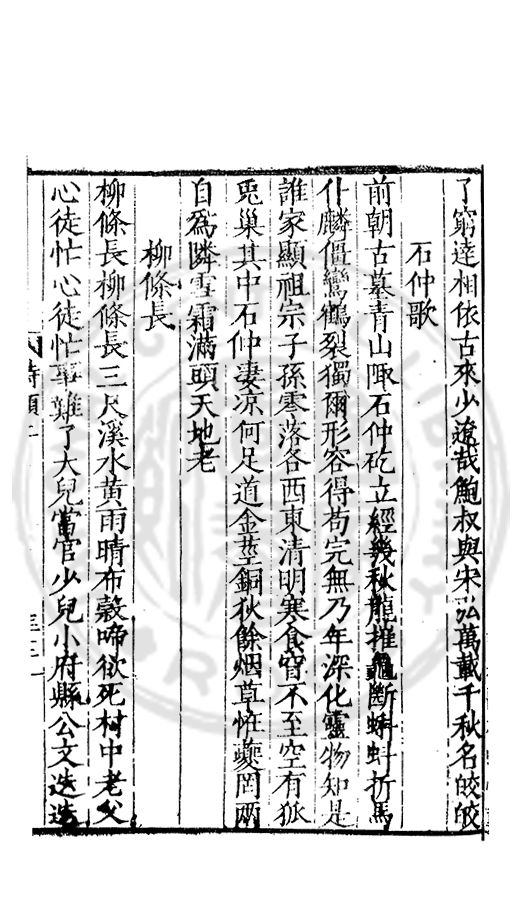 了窮達相依古來少遼哉鮑叔與宋弘萬載千秋名皎皎
石仲歌
前朝古墓青山陬石仲矻立經幾秋龍摧龜斷蝌蚪折馬
仆麟僵鸞鶴裂獨爾形容得苟完無乃年深化靈物知是
誰家顯祖宗子孫零落各西東清明寒食曾不至空有狐
兎巢其中石仲淒凉何足道金莖銅秋餘烟草恠夔罔兩
自爲隣雪霜滿頭天地老
柳條長
柳條長柳條長三尺溪水黃雨晴布穀啼欲死村中老父
心徒忙心徒忙事難了大兒當官少兒小府縣公文迭迭